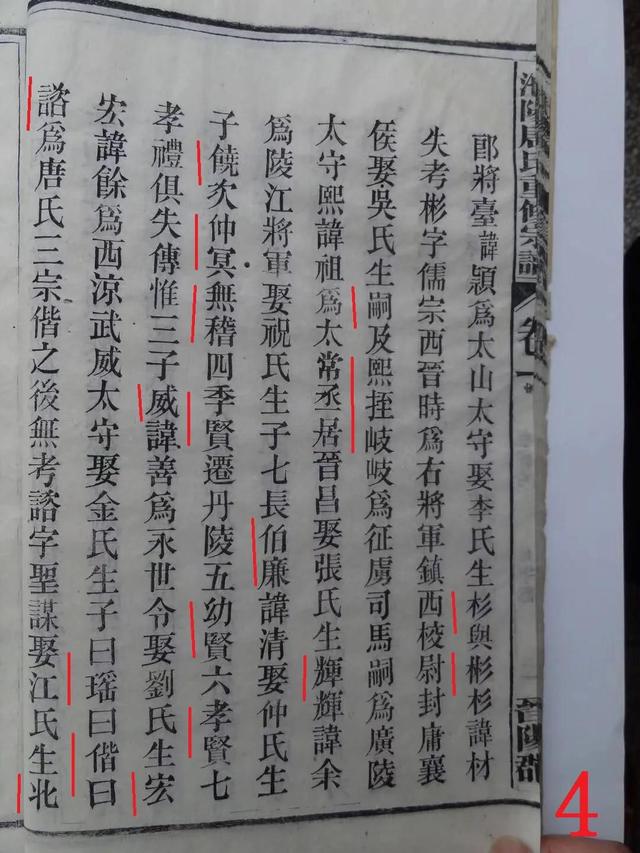 唐氏重修宗譜
卷一
晉陽郡
郎將臺諱穎爲太山太守娶李氏生杉與彬杉諱材
失考彬字儒宗西晉時爲右將軍鎮西校尉封庸襄
侯娶吳氏生嗣及熙挃岐岐爲征虜司馬嗣爲廣陵
太守熙諱祖爲太常丞居晉昌娶張氏生輝輝諱余
爲陵江將軍娶祝氏生子七長伯廉諱清娶仲氏生
子饒次仲冥無稽四季賢遷丹陵五幼賢六孝賢七
孝禮俱失傳惟三子威諱善爲永世令娶劉氏生宏
宏諱餘爲西涼武威太守娶金氏生子曰瑤曰偕曰
諮爲唐氏三宗偕之後無考諮字聖謀娶江氏生北
4